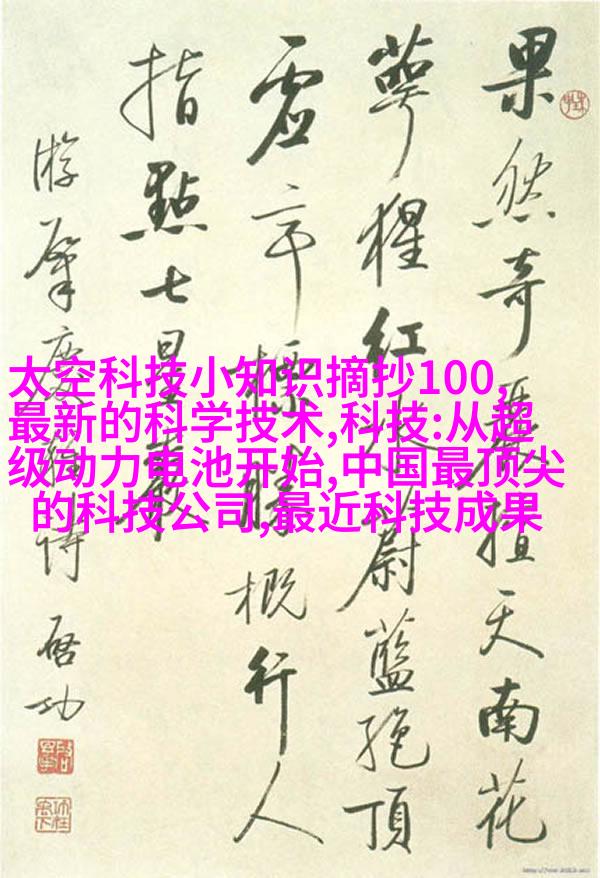 果然奇麗擅天南花
萼猩紅蔚藍絕頂
虛亭標勝概行人
指點七星巖
游肇慶雜詩 啟功
太空科技小知识摘抄100,
最新的科学技术,科技:从超
级动力电池开始,中国最顶尖
的科技公司,最近科技成果